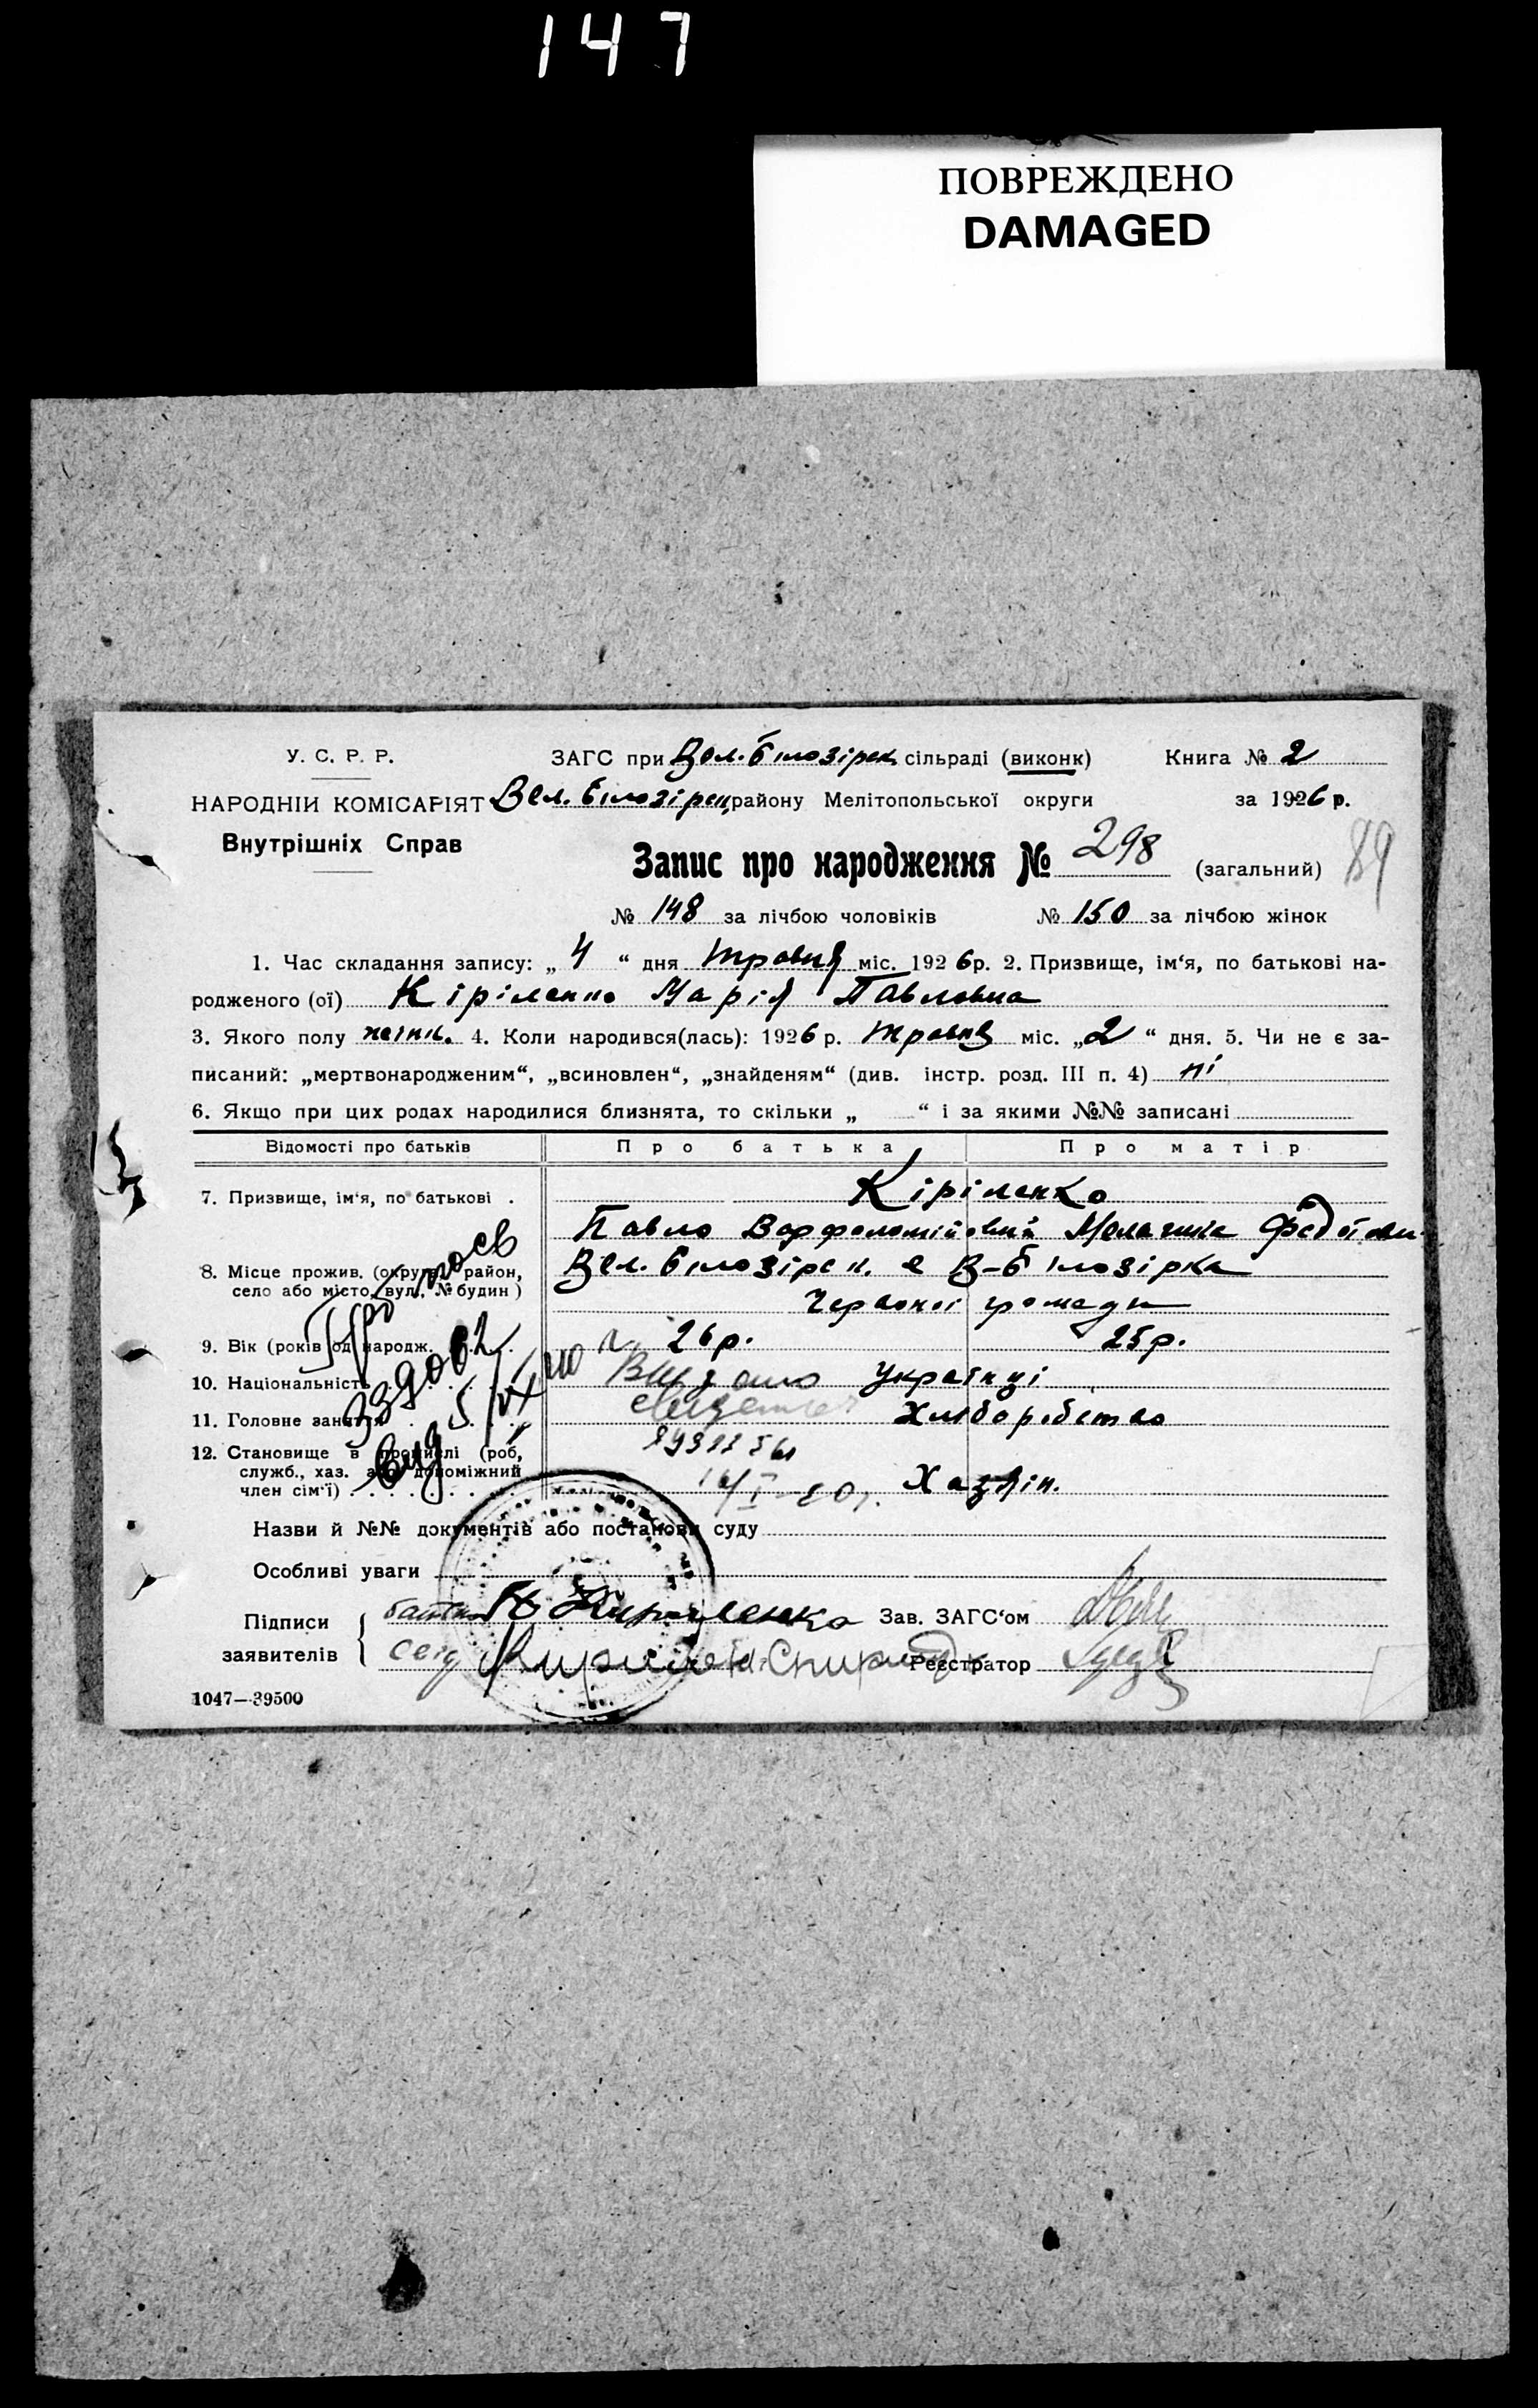 147
ПОВРЕЖДЕНО
DAMAGED
У. С. Р. Р. ЗАГС при Вел. Білозірск сільраді (виконк) Книга № 2
НАРОДНІЙ КОМІСАРІЯТ Вел. Білозірск району Мелітопольської округи за 1926 р.
Внутрішніх Справ
Запис про народження № 298 (загальний) 89
№ 148 за лічбою чоловіків № 150 за лічбою жінок
1. Час складання запису: „ 4 “ дня травня міс. 1926р. 2. Призвище, ім‘я, по батькові на-
родженого (ої) Кіріленко Марія Павловна
3. Якого полу жіти. 4. Коли народився(лась): 1926 р. травня міс. „2“ дня. 5. Чи не є за-
писаний: „мертвонародженим“, „всиновлен“, „знайденям“ (див. інстр. розд. III п. 4) ні
6. Якщо при цих родах народилися близнята, то скільки „ “ і за якими №№ записані
Відомості про батьків Про батька Про матір
7. Призвище, ім‘я, по батькові . Кіріленко
Павло Варфоломійович Меланика
8. Місце прожив. (округ, район, Вел. Білозірск. с В-Білозірка
село або місто, вул., № будин) Червоної громади
9. Вік (років од народж. 26р. 25р.
10. Національність Видано Українці
11. Головне заняття Хліборобство
12. Становище в промислі (роб,
служб., хаз. або допоміжний
член сім‘ї) Хазяїн.
Назви й №№ документів або постанови суду
Особливі уваги
Підписи
заявителів
батько П Кириленко Зав. ЗАГС‘ом
Реєстратор
1047—39500